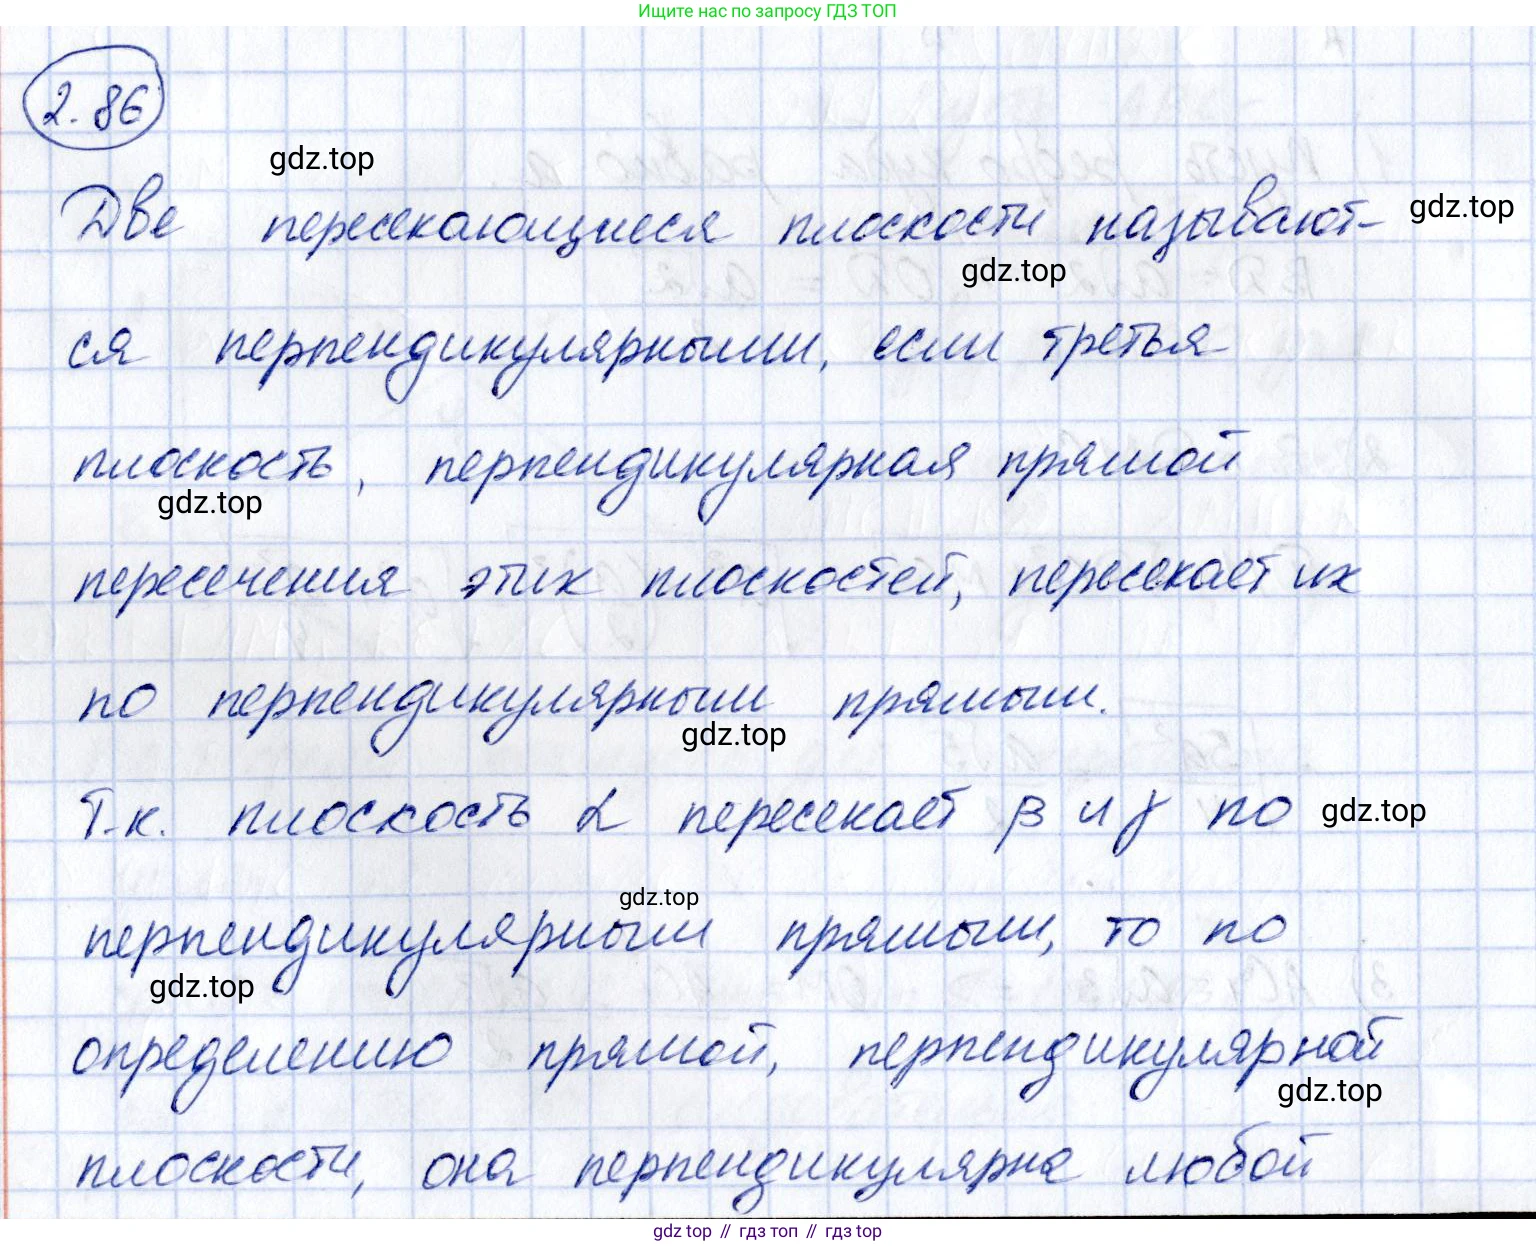 Ищите нас по запросу ГДЗ ТОП
2.86
gdz.top
Две пересекающиеся плоскости называют-
gdz.top
gdz.top
ся перпендикулярными, если третья
плоскость, перпендикулярная прямой
gdz.top
пересечения этих плоскостей, пересекает их
по перпендикулярным прямым.
gdz.top
Т.к. плоскость α пересекает β и γ по
gdz.top
gdz.top
перпендикулярным прямым, то по
gdz.top
определению прямой, перпендикулярной
gdz.top
плоскости, она перпендикулярна любой
gdz top // гдз топ // gdz.top